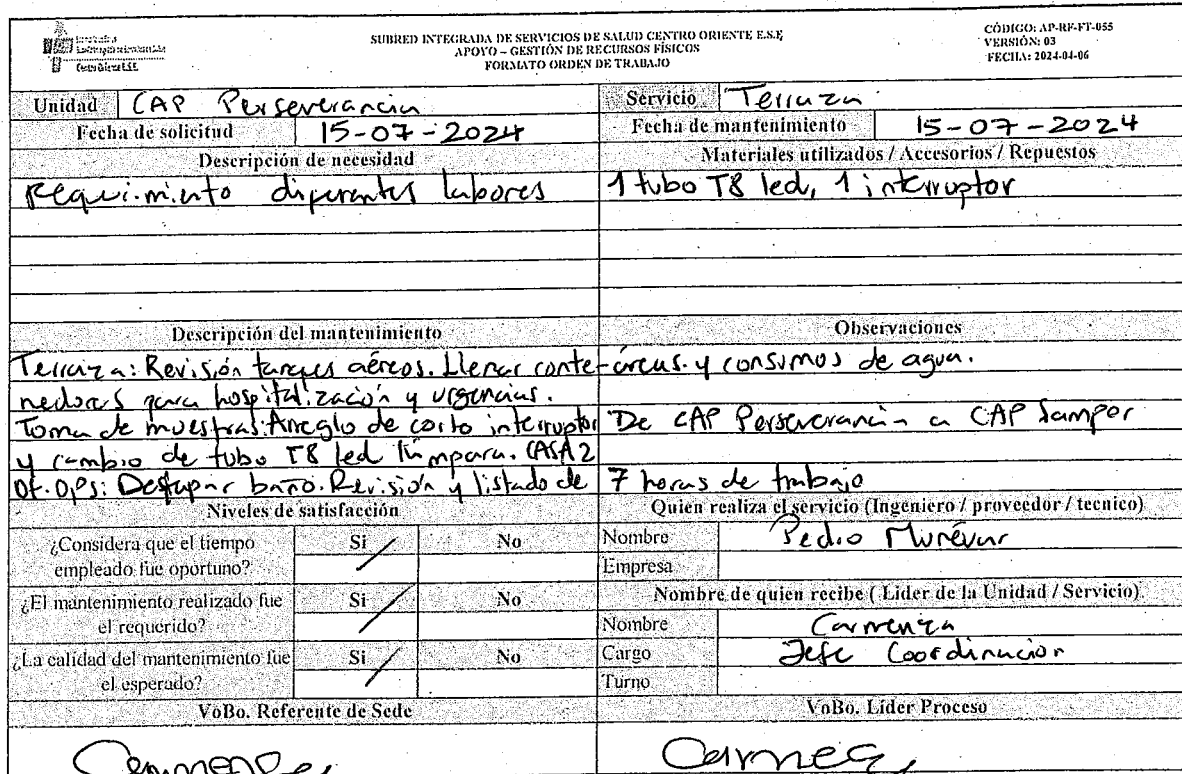 SUBRED INTEGRADA DE SERVICIOS DE SALUD CENTRO ORIENTE E.S.E
APOYO – GESTIÓN DE RECURSOS FÍSICOS
FORMATO ORDEN DE TRABAJO
CÓDIGO: AP-RF-FT-055
VERSIÓN: 03
FECHA: 2024-04-06
Unidad CAP Perseverancia
Servicio Terraza
Fecha de solicitud 15-07-2024
Fecha de mantenimiento 15-07-2024
Descripción de necesidad
Requimiento diferentes labores
Materiales utilizados / Accesorios / Repuestos
1 tubo T8 led, 1 interruptor
Descripción del mantenimiento
Terraza: Revisión tanques aéreos. Llenar conte-
nedores para hospitalización y urgencias.
Toma de muestras: Arreglo de corto interruptor
y cambio de tubo T8 led lámpara. CASA 2
Of. OPS: Destapar baño. Revisión y listado de
Observaciones
áreas. y consumos de agua.
De CAP Perseverancia a CAP Samper
7 horas de trabajo
Niveles de satisfacción
¿Considera que el tiempo empleado fue oportuno? Si / No
¿El mantenimiento realizado fue el requerido? Si / No
¿La calidad del mantenimiento fue el esperado? Si / No
Quien realiza el servicio (Ingeniero / proveedor / tecnico)
Nombre Pedro Munévar
Empresa
Nombre de quien recibe ( Lider de la Unidad / Servicio)
Nombre Carmenza
Cargo Jefe Coordinacion
Turno
VoBo. Referente de Sede
VoBo. Lider Proceso